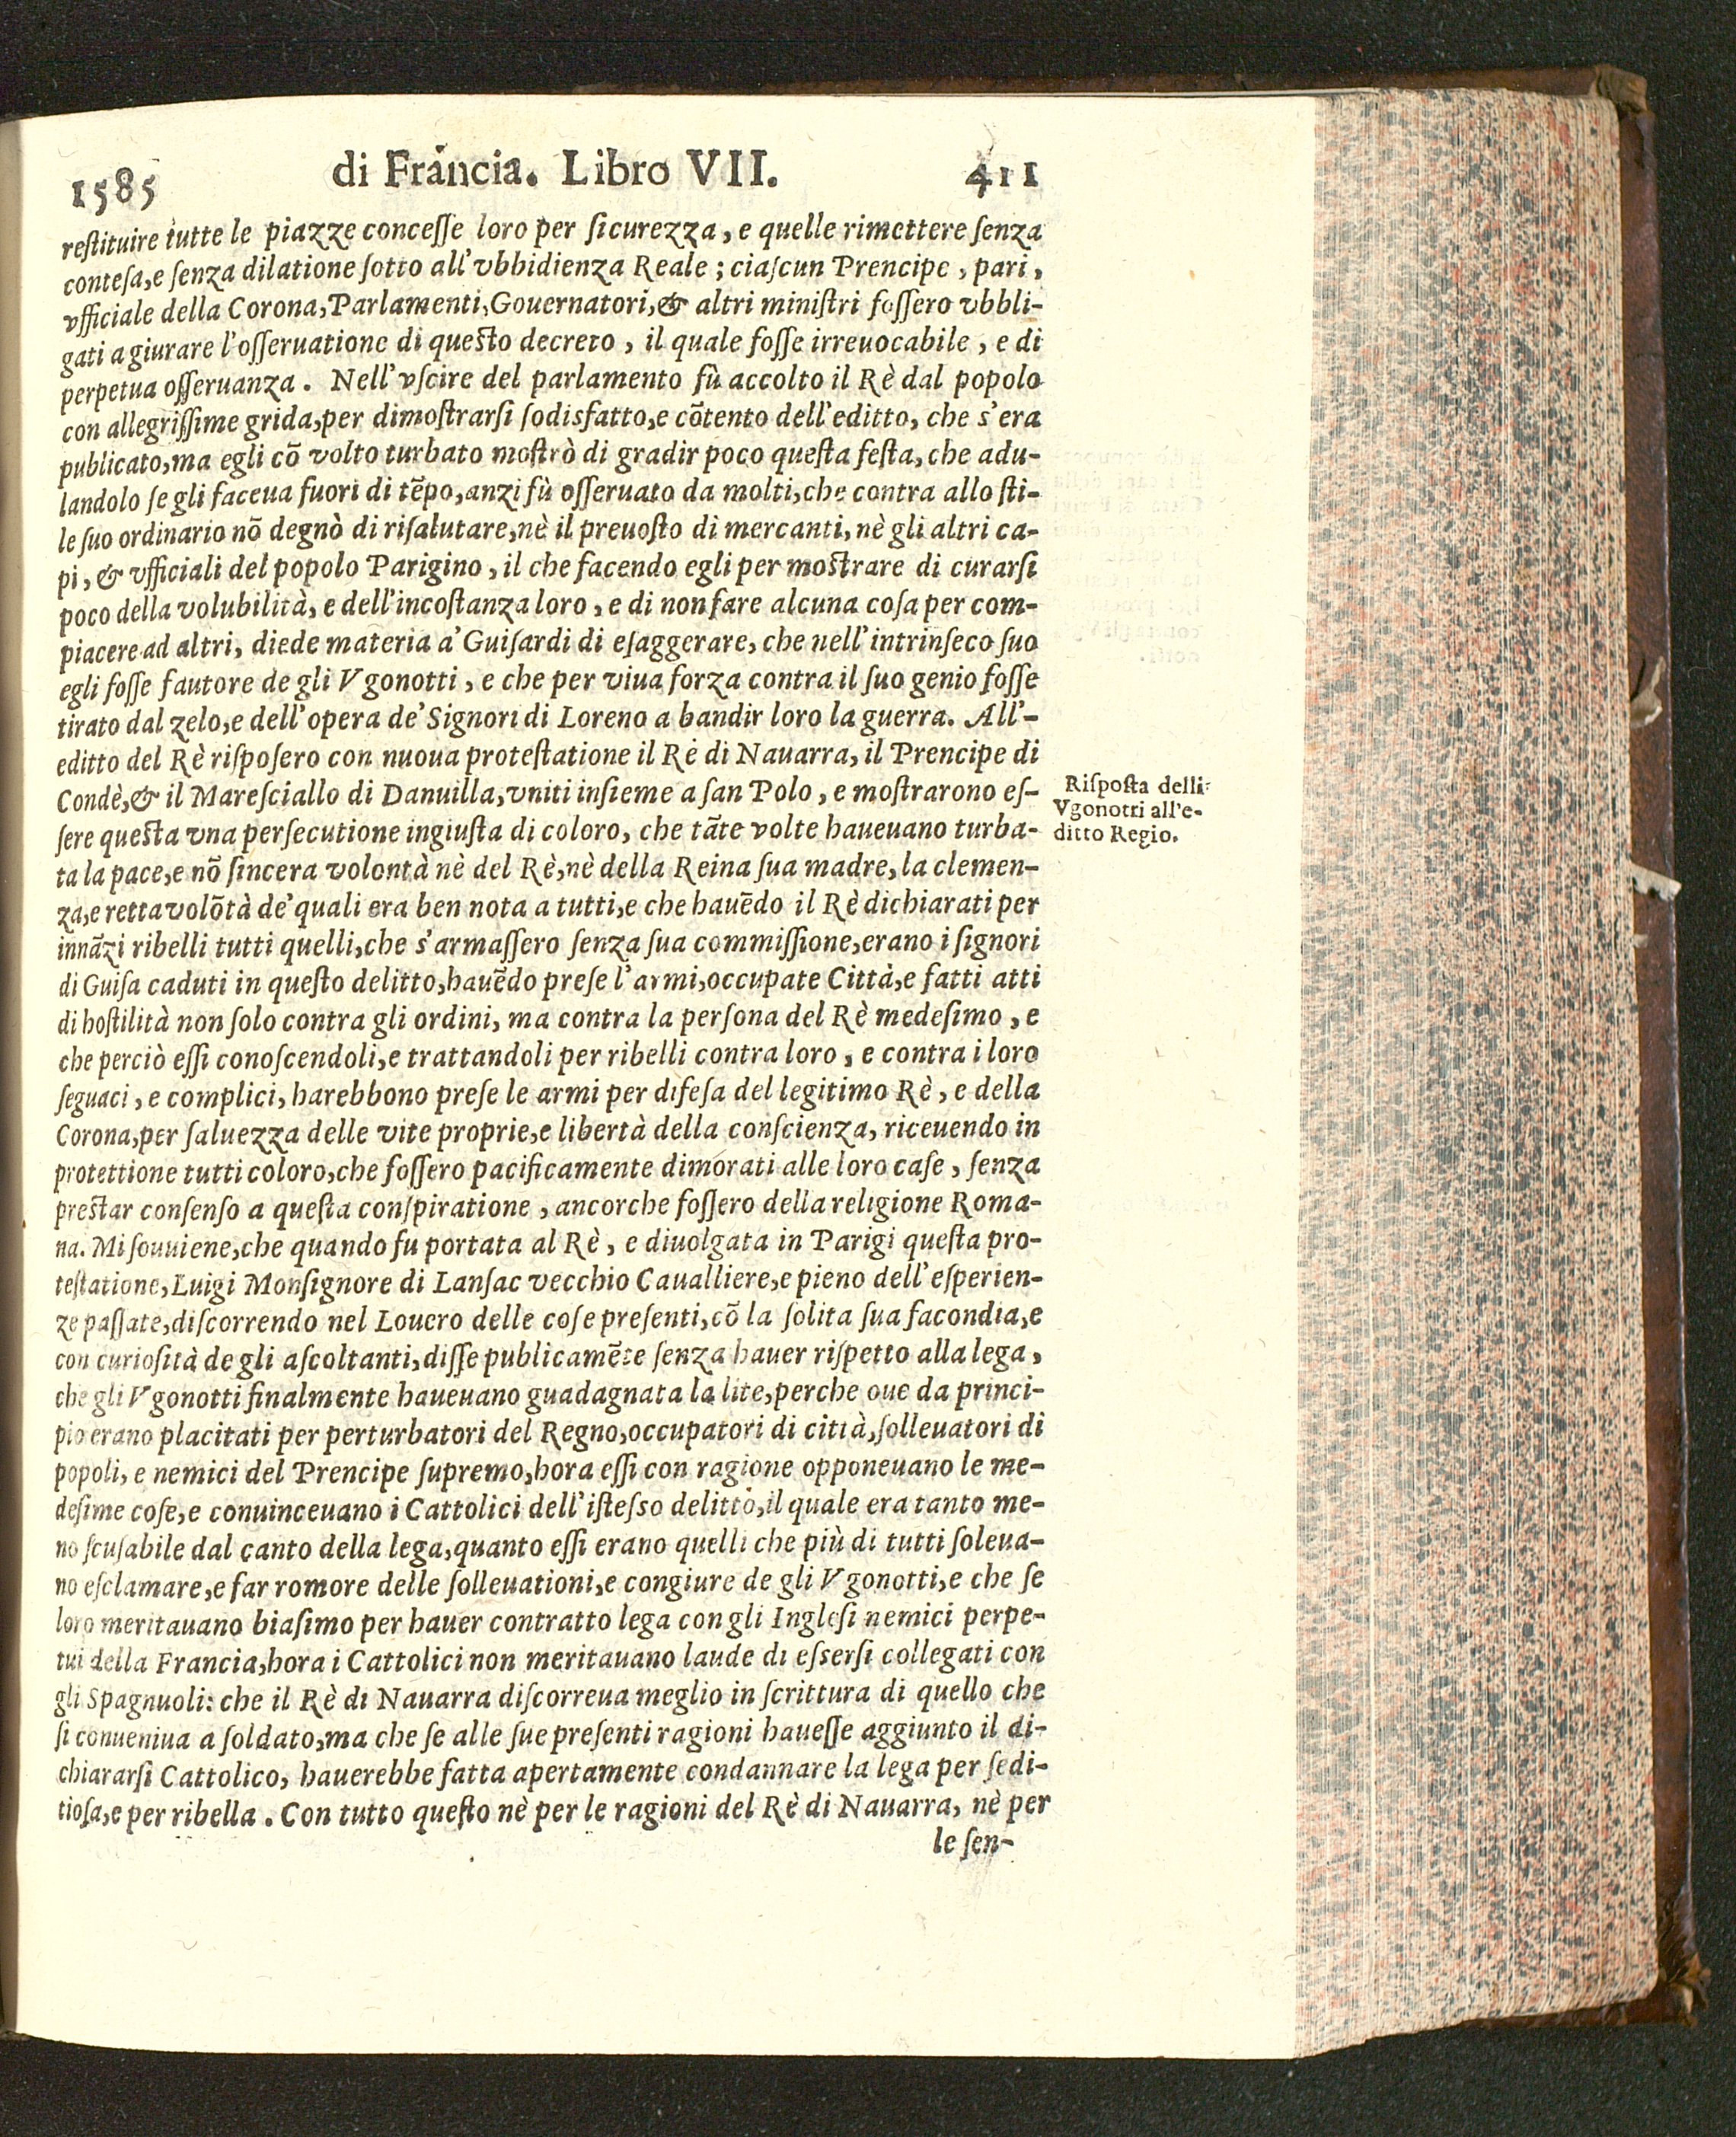 1585 di Francia. Libro VII. 411
reſtituire tutte le piazze conceſſe loro per ſicurezza, e quelle rimettere ſenza
conteſa,e ſenza dilatione ſotto all'vbbidienza Reale; ciaſcun Prencipe, pari,
vfficiale della Corona,Parlamenti,Gouernatori,& altri miniſtri foſſero vbbli-
gati a giurare l'oſſeruatione di queſto decreto, il quale foſſe irreuocabile, e di
perpetua oſſeruanza. Nell'vſcire del parlamento fù accolto il Rè dal popolo
con allegriſſime grida,per dimoſtrarſi ſodisfatto,e cõtento dell'editto, che s'era
publicato,ma egli cõ volto turbato moſtrò di gradir poco queſta feſta, che adu-
landolo ſe gli faceua fuori di tẽpo,anzi fù oſſeruato da molti,che contra allo ſti-
le ſuo ordinario nõ degnò di riſalutare,nè il preuoſto di mercanti, nè gli altri ca-
pi, & vfficiali del popolo Parigino, il che facendo egli per moſtrare di curarſi
poco della volubilità, e dell'incoſtanza loro, e di non fare alcuna coſa per com-
piacere ad altri, diede materia a' Guiſardi di eſaggerare, che nell'intrinſeco ſuo
egli foſſe fautore de gli Vgonotti, e che per viua forza contra il ſuo genio foſſe
tirato dal zelo,e dell'opera de' Signori di Loreno a bandir loro la guerra. All'-
editto del Rè riſpoſero con nuoua proteſtatione il Rè di Nauarra, il Prencipe di
Condè,& il Mareſciallo di Danuilla,vniti inſieme a ſan Polo, e moſtrarono eſ-
ſere queſta vna perſecutione ingiuſta di coloro, che tãte volte haueuano turba-
ta la pace,e nõ ſincera volontà nè del Rè,nè della Reina ſua madre, la clemen-
za,e retta volõtà de' quali era ben nota a tutti,e che hauẽdo il Rè dichiarati per
innãzi ribelli tutti quelli,che s'armaſſero ſenza ſua commiſſione,erano i ſignori
di Guiſa caduti in queſto delitto,hauẽdo preſe l'armi,occupate Città,e fatti atti
di hoſtilità non ſolo contra gli ordini, ma contra la perſona del Rè medeſimo, e
che perciò eſſi conoſcendoli,e trattandoli per ribelli contra loro, e contra i loro
ſeguaci, e complici, harebbono preſe le armi per difeſa del legitimo Rè, e della
Corona,per ſaluezza delle vite proprie,e libertà della conſcienza, riceuendo in
protettione tutti coloro,che foſſero pacificamente dimorati alle loro caſe, ſenza
preſtar conſenſo a queſta conſpiratione, ancorche foſſero della religione Roma-
na. Mi ſouuiene,che quando fu portata al Rè, e diuolgata in Parigi queſta pro-
teſtatione, Luigi Monſignore di Lanſac vecchio Caualliere,e pieno dell'eſperien-
ze paſſate,diſcorrendo nel Louero delle coſe preſenti,cõ la ſolita ſua facondia,e
con curioſità de gli aſcoltanti,diſſe publicamẽte ſenza hauer riſpetto alla lega,
che gli Vgonotti finalmente haueuano guadagnata la lite,perche oue da princi-
pio erano placitati per perturbatori del Regno,occupatori di città,ſolleuatori di
popoli, e nemici del Prencipe ſupremo,hora eſſi con ragione opponeuano le me-
deſime coſe,e conuinceuano i Cattolici dell'iſteſso delitto,il quale era tanto me-
no ſcuſabile dal canto della lega,quanto eſſi erano quelli che più di tutti ſoleua-
no eſclamare,e far romore delle ſolleuationi,e congiure de gli Vgonotti,e che ſe
loro meritauano biaſimo per hauer contratto lega con gli Ingleſi nemici perpe-
tui della Francia,hora i Cattolici non meritauano laude di eſserſi collegati con
gli Spagnuoli: che il Rè di Nauarra diſcorreua meglio in ſcrittura di quello che
ſi conueniua a ſoldato,ma che ſe alle ſue preſenti ragioni haueſſe aggiunto il di-
chiararſi Cattolico, hauerebbe fatta apertamente condannare la lega per ſedi-
tioſa,e per ribella. Con tutto queſto nè per le ragioni del Rè di Nauarra, nè per
le ſen-
Riſpoſta delli
Vgonotti all'e-
ditto Regio.